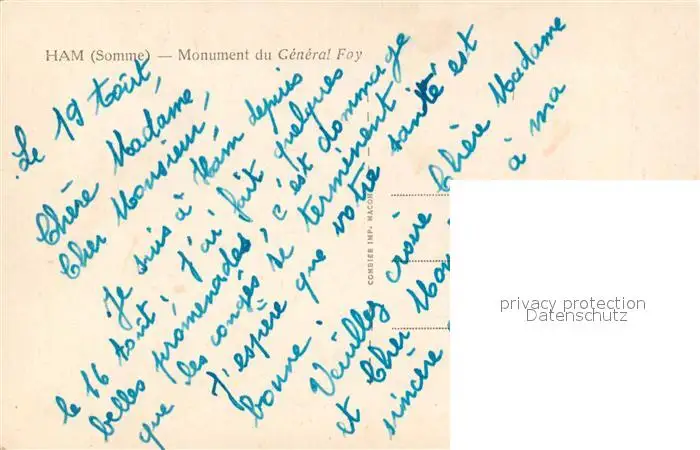 HAM (Somme) — Monument du Général Foy
Le 19 Août,
Chère Madame,
Cher Monsieur,
Je suis à Ham depuis
le 16 Août ; j'ai fait quelques
belles promenades, c'est dommage
que les congés se terminent
J'espère que votre santé est
bonne.
Veuillez croire Chère Madame
et Cher Mon
à ma
sincère
COMBIER IMP. MACON
privacy protection
Datenschutz